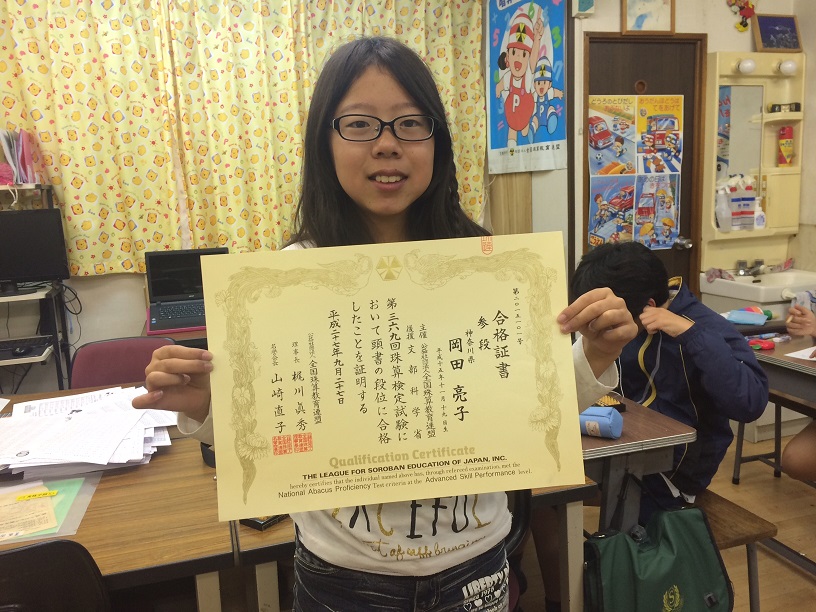 合格証書
参段
神奈川県
岡田亮子
平成十五年十一月十九日生
主催 公益社団法人全国珠算教育連盟
後援 文部科学省
第三六九回珠算検定試験に
おいて頭書の段位に合格
したことを証明する
平成二十七年九月二十七日
公益社団法人全国珠算教育連盟
理事長 梶川眞秀
名誉会長 山崎直子
Qualification Certificate
THE LEAGUE FOR SOROBAN EDUCATION OF JAPAN, INC.
hereby certifies that the individual named above has, through referred examination, met the
National Abacus Proficiency Test criteria at the Advanced Skill Performance level.
P
P
LIBERTY